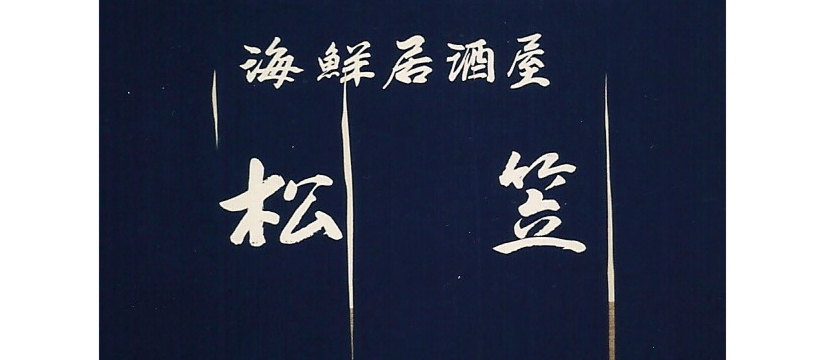 海鮮居酒屋
松笠